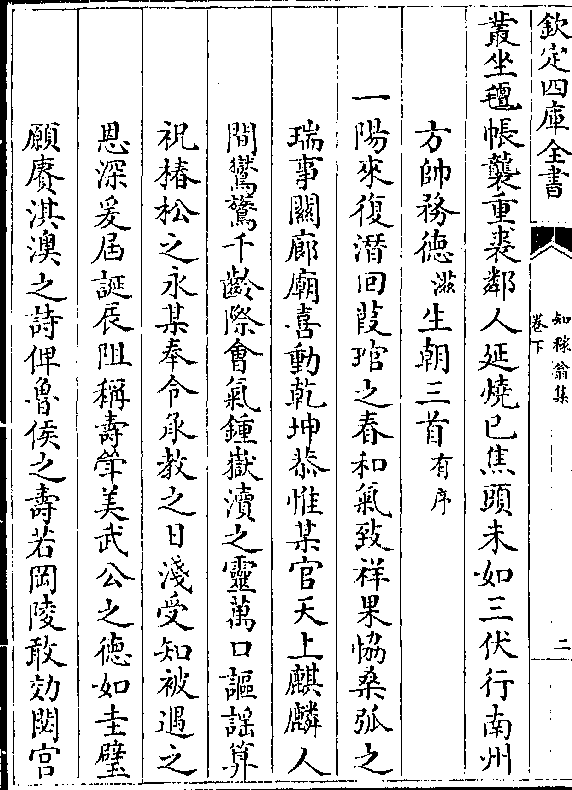 欽定四庫全書
知稼翁集
卷下
二
叢坐氊帳襲重裘鄰人延燒已焦頭未如三伏行南州
方帥務德滋生朝三首有序
一陽來復潛回葭琯之春和氣致祥果恊桑弧之
瑞事關廊廟喜動乾坤恭惟某官天上麒麟人
間鸑鷟千齡際會氣鍾嶽瀆之靈萬口謳謡算
祝椿松之永某奉令承教之日淺受知被遇之
恩深爰届誕辰阻稱壽斝美武公之徳如圭璧
願賡淇澳之詩俾魯侯之壽若岡陵敢效閟宫